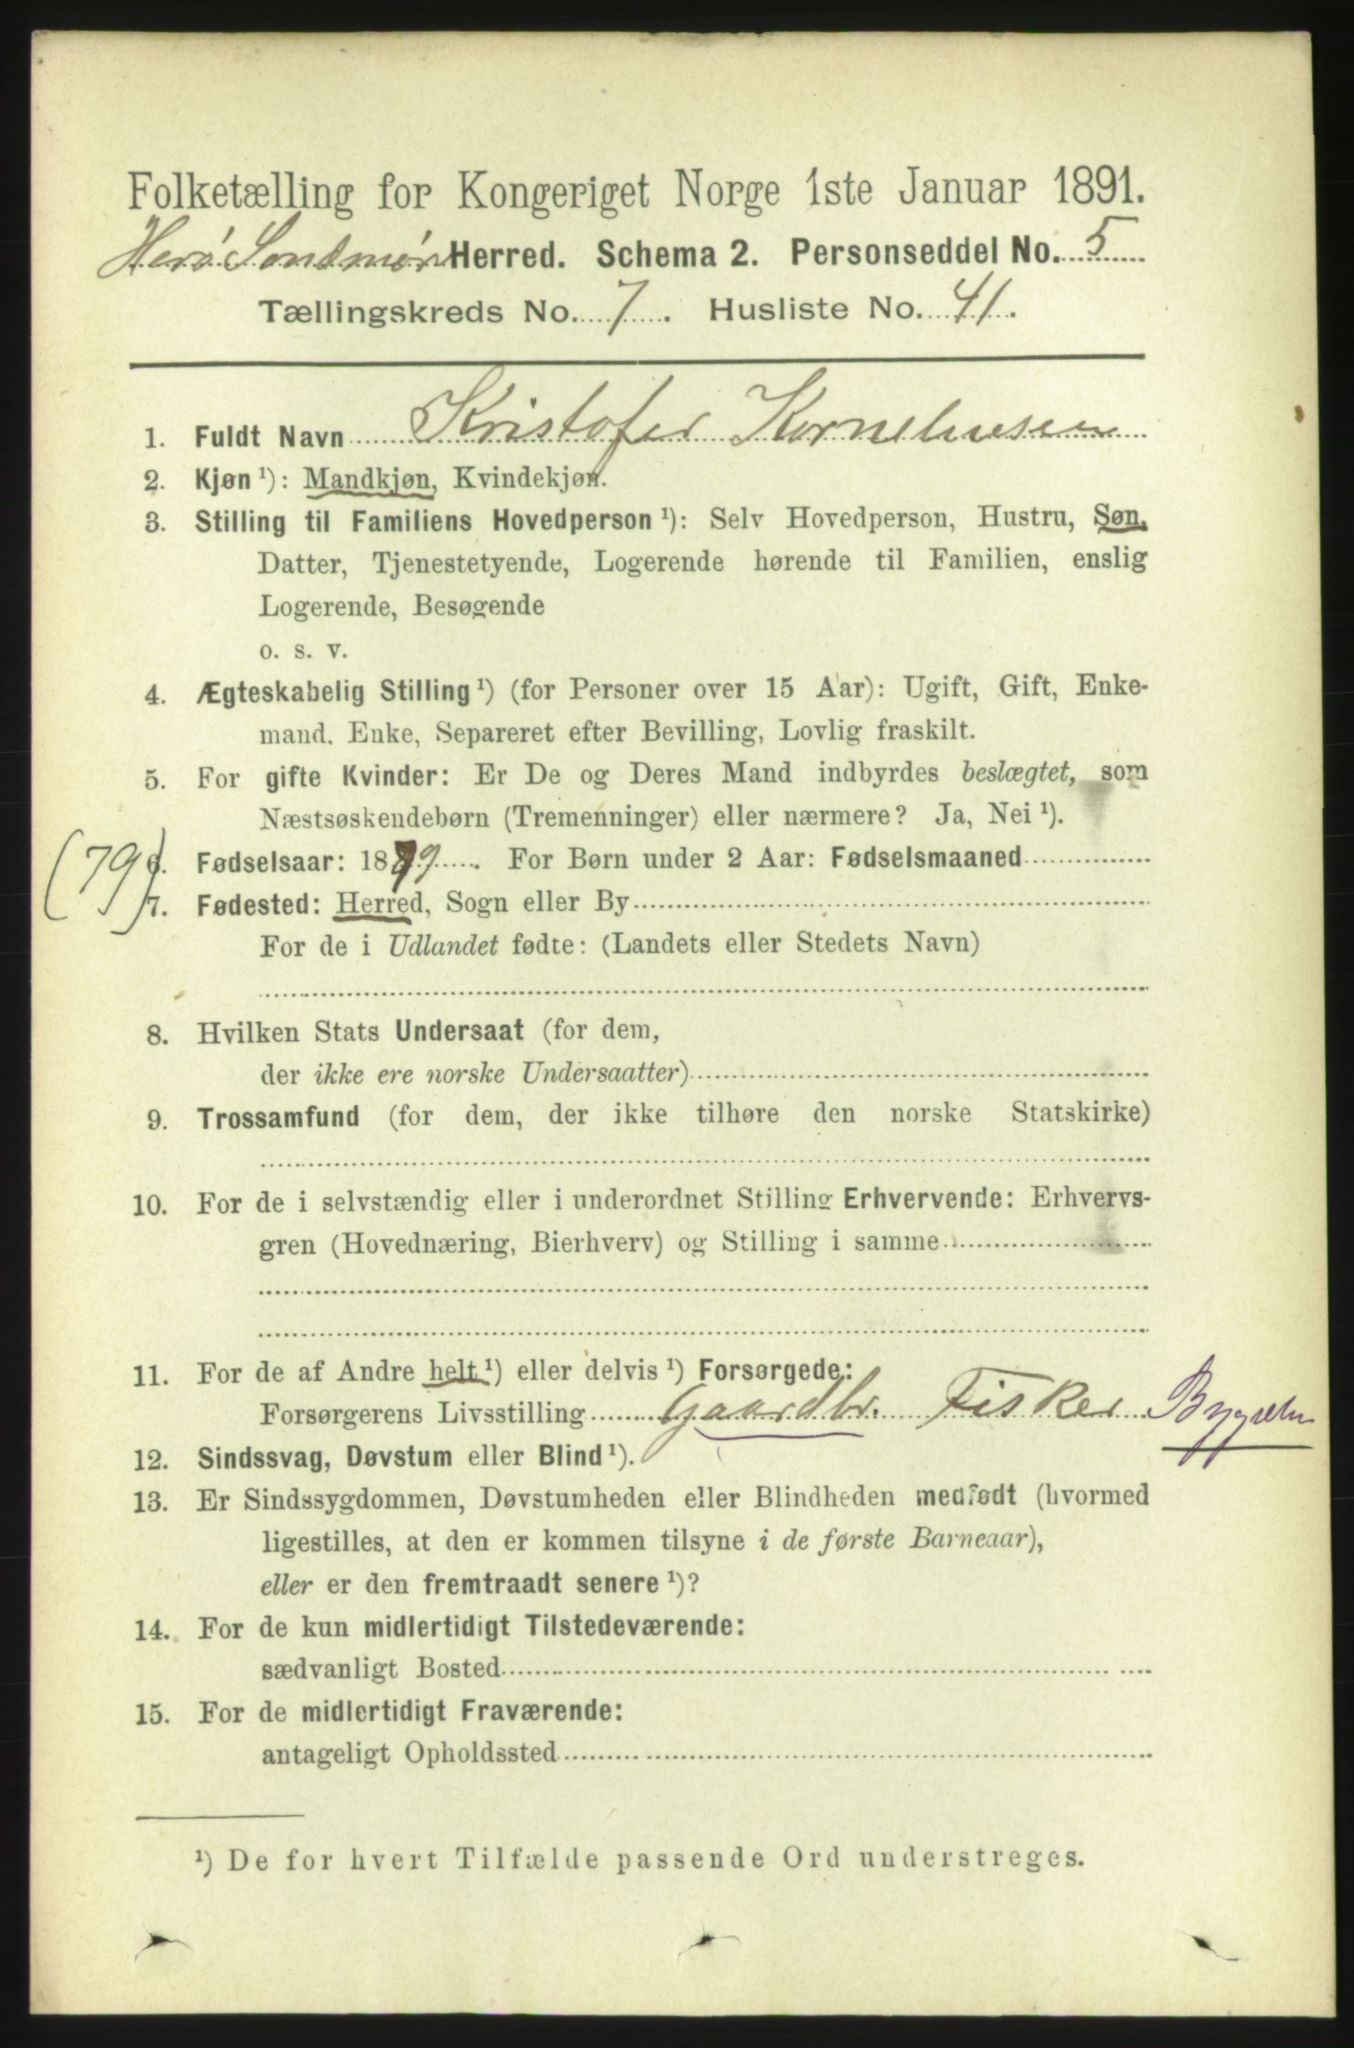 Folketælling for Kongeriget Norge 1ste Januar 1891.
Herö Søndmør Herred. Schema 2. Personseddel No. 5
Tællingskreds No. 7. Husliste No. 41.
1. Fuldt Navn Kristofer Korneliusen
2. Kjøn ¹): Mandkjøn, Kvindekjøn.
3. Stilling til Familiens Hovedperson ¹): Selv Hovedperson, Hustru, Søn,
Datter, Tjenestetyende, Logerende hørende til Familien, enslig
Logerende, Besøgende
o. s. v.
4. Ægteskabelig Stilling ¹) (for Personer over 15 Aar): Ugift, Gift, Enke-
mand, Enke, Separeret efter Bevilling, Lovlig fraskilt.
5. For gifte Kvinder: Er De og Deres Mand indbyrdes beslægtet, som
Næstsøskendebørn (Tremenninger) eller nærmere? Ja, Nei ¹).
(79) 6. Fødselsaar: 1879. For Børn under 2 Aar: Fødselsmaaned
7. Fødested: Herred, Sogn eller By
For de i Udlandet fødte: (Landets eller Stedets Navn)
8. Hvilken Stats Undersaat (for dem,
der ikke ere norske Undersaatter)
9. Trossamfund (for dem, der ikke tilhøre den norske Statskirke)
10. For de i selvstændig eller i underordnet Stilling Erhvervende: Erhvervs-
gren (Hovednæring, Bierhverv) og Stilling i samme
11. For de af Andre helt ¹) eller delvis ¹) Forsørgede:
Forsørgerens Livsstilling Gaardbr. Fisker
12. Sindssvag, Døvstum eller Blind ¹).
13. Er Sindssygdommen, Døvstumheden eller Blindheden medfødt (hvormed
ligestilles, at den er kommen tilsyne i de første Barneaar),
eller er den fremtraadt senere ¹)?
14. For de kun midlertidigt Tilstedeværende:
sædvanligt Bosted
15. For de midlertidigt Fraværende:
antageligt Opholdssted
¹) De for hvert Tilfælde passende Ord understreges.